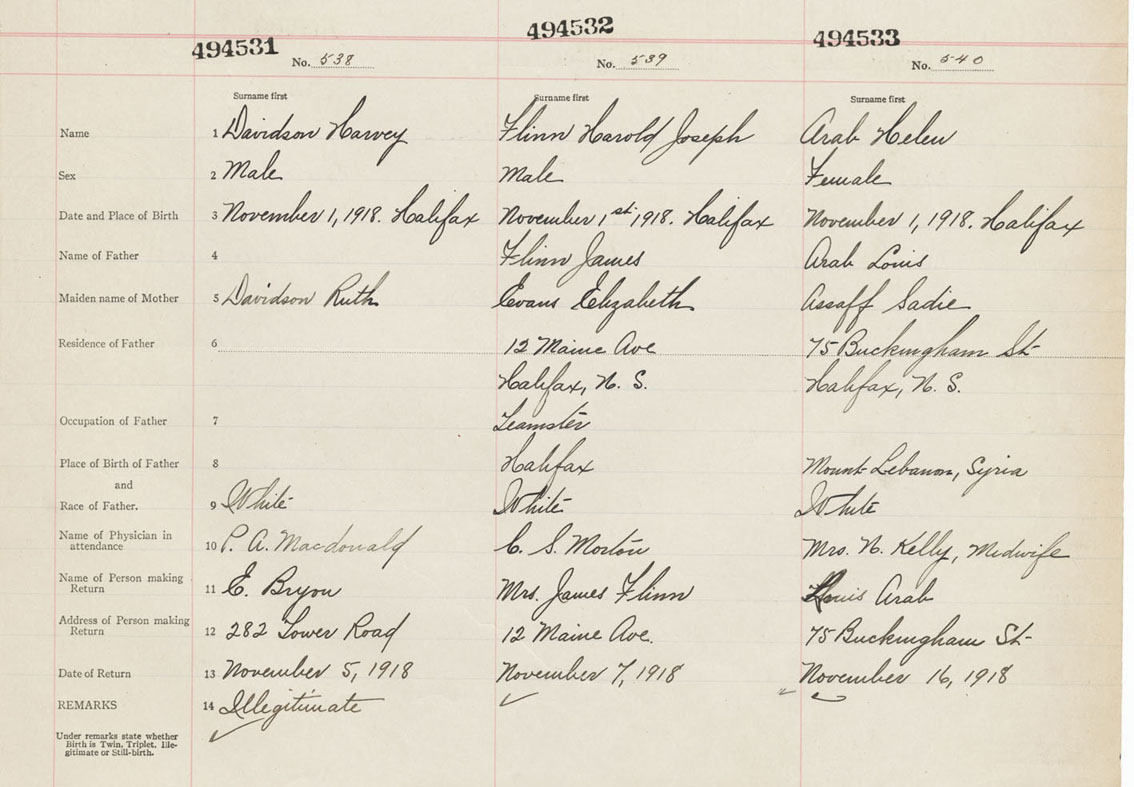 494531 494532 494533
No. 538 No. 539 No. 540
Surname first Surname first Surname first
Name 1 Davidson Harvey Flinn Harold Joseph Arab Helen
Sex 2 Male Male Female
Date and Place of Birth 3 November 1, 1918. Halifax November 1st, 1918. Halifax November 1, 1918. Halifax
Name of Father 4 Flinn James Arab Louis
Maiden name of Mother 5 Davidson Ruth Evans Elizabeth Assaff Sadie
Residence of Father 6 12 Maine Ave 75 Buckingham St
Halifax, N. S. Halifax, N. S.
Occupation of Father 7 Teamster
Place of Birth of Father 8 Halifax Mount Lebanon, Syria
and
Race of Father. 9 White White White
Name of Physician in
attendance 10 P. A. Macdonald C. S. Morton Mrs. N. Kelly, Midwife
Name of Person making
Return 11 E. Bryon Mrs. James Flinn Louis Arab
Address of Person making
Return 12 282 Tower Road 12 Maine Ave. 75 Buckingham St
Date of Return 13 November 5, 1918 November 7, 1918 November 16, 1918
REMARKS 14 Illegitimate
Under remarks state whether
Birth is Twin, Triplet, Ille-
gitimate or Still-birth.